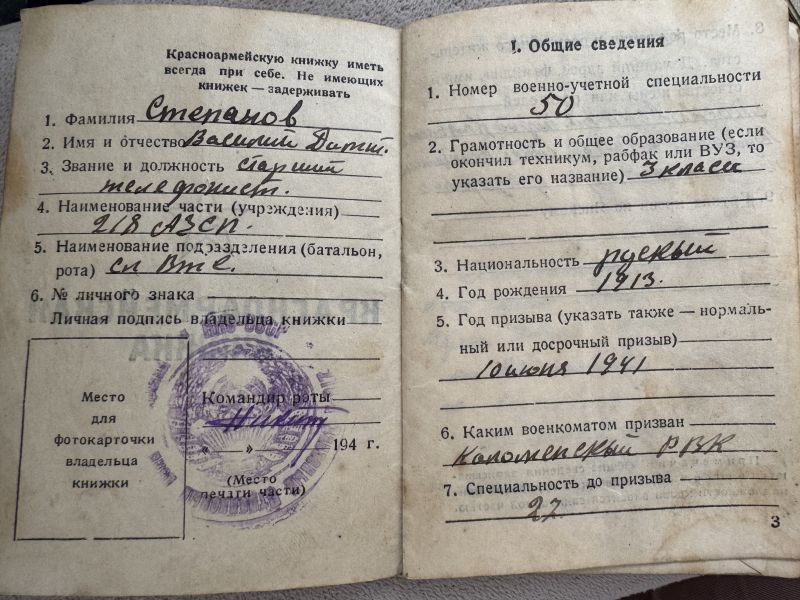 Красноармейскую книжку иметь
всегда при себе. Не имеющих
книжек — задерживать
1. Фамилия Степанов
2. Имя и отчество Василий
3. Звание и должность старший
телефонист.
4. Наименование части (учреждения)
218 АЗСП.
5. Наименование подразделения (батальон,
рота)
6. № личного знака
Личная подпись владельца книжки
Место
для
фотокарточки
владельца
книжки
Командир роты
„ “ 194 г.
(Место
печати части)
I. Общие сведения
1. Номер военно-учетной специальности
50
2. Грамотность и общее образование (если
окончил техникум, рабфак или ВУЗ, то
указать его название) 3 класса
3. Национальность руский
4. Год рождения 1913.
5. Год призыва (указать также — нормаль-
ный или досрочный призыв)
10 июня 1941
6. Каким военкоматом призван
Коломенский РВК
7. Специальность до призыва
27
3